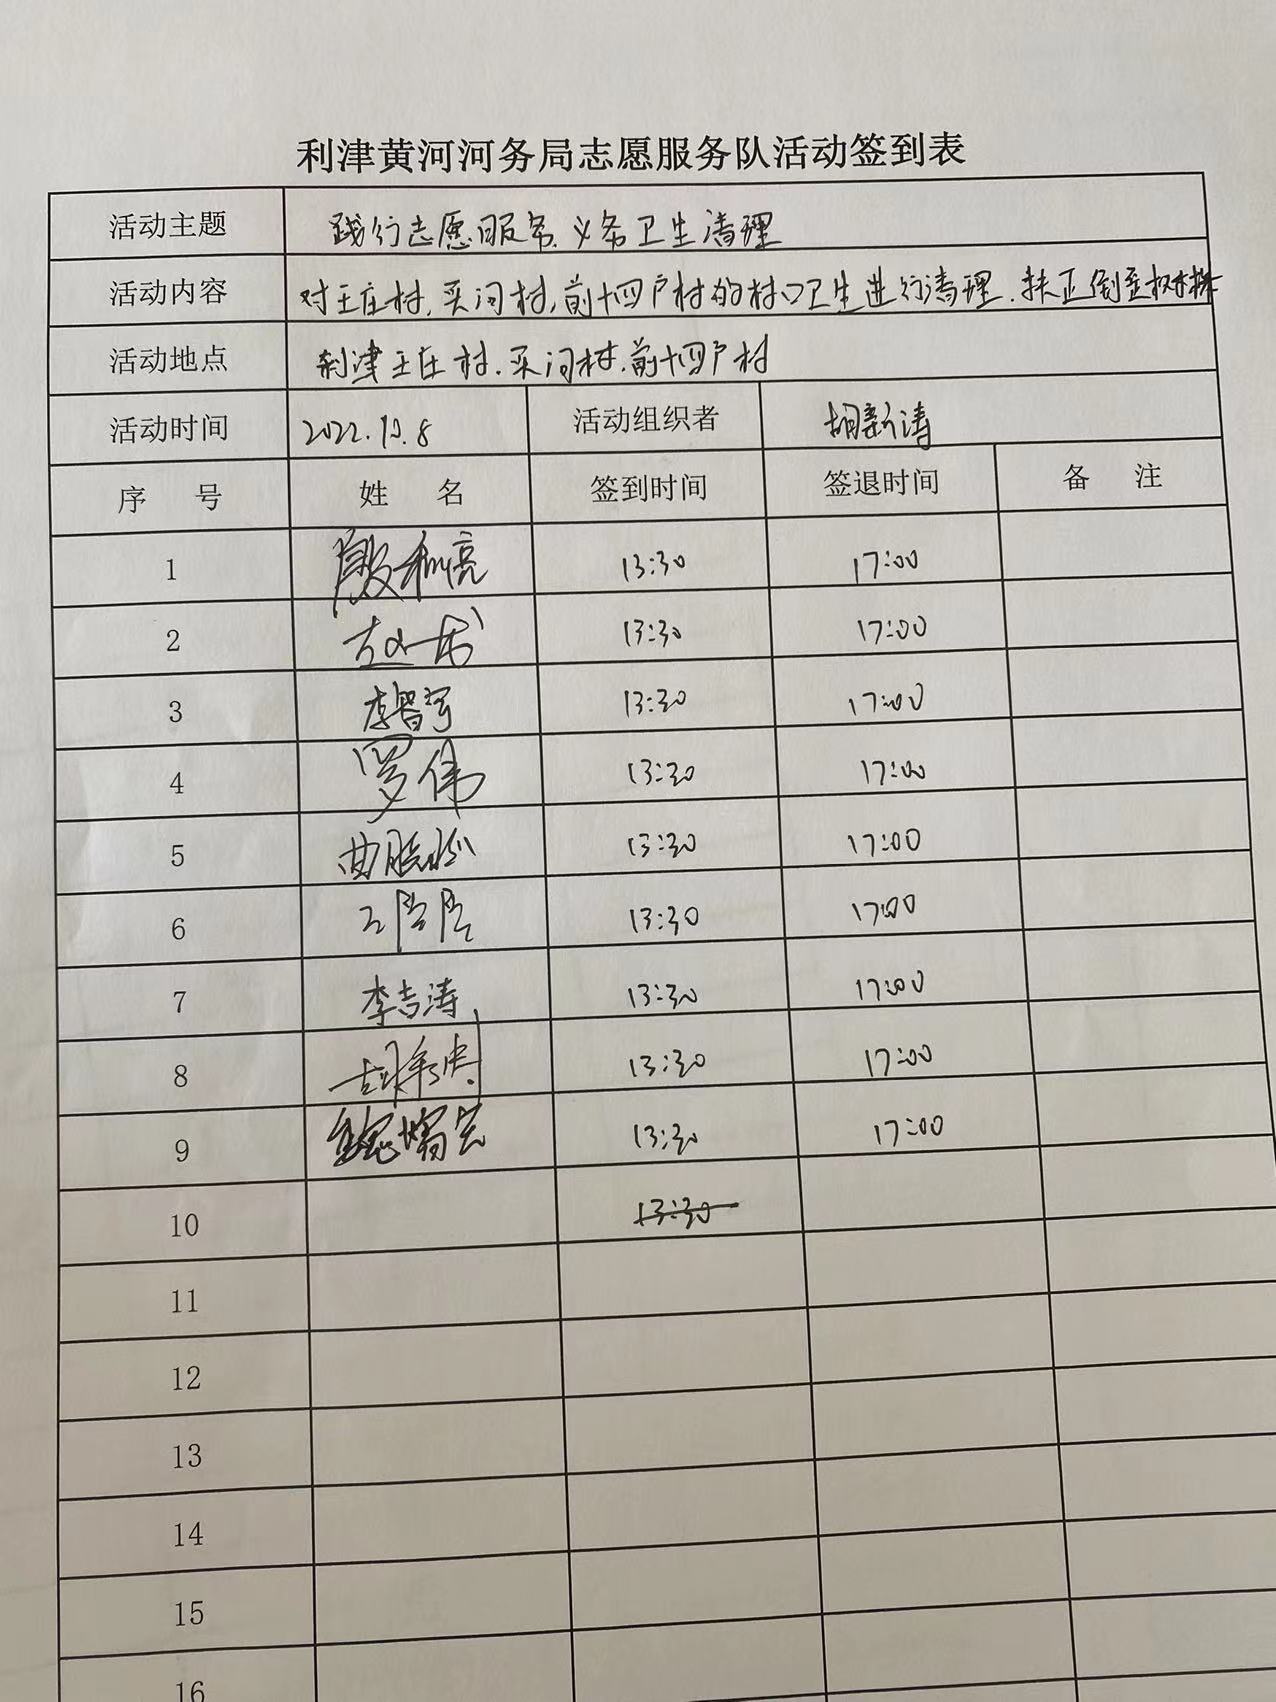 利津黄河河务局志愿服务队活动签到表
活动主题 践行志愿服务、义务卫生清理
活动内容 对王庄村,买河村,前十四户村的村口卫生进行清理.扶正倒歪树
活动地点 利津王庄村.买河村.前十四户村
活动时间 2022.12.8 活动组织者 胡新涛
序 号 姓 名 签到时间 签退时间 备 注
1 13:30 17:00
2 13:30 17:00
3 李智宇 13:30 17:00
4 罗伟 13:30 17:00
5 13:30 17:00
6 13:30 17:00
7 李吉涛 13:30 17:00
8 13:30 17:00
9 13:30 17:00
10 13:30
11
12
13
14
15
16